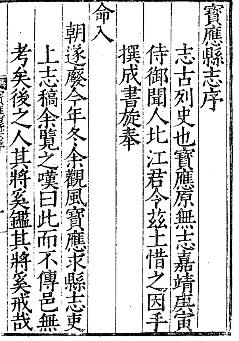 寳應縣志序
志古列史也寳應原無志嘉靖庚寅
侍御聞人北江君令兹土惜之因手
撰成書旋奉
命入
朝遂廢今年冬余觀風寳應求縣志吏
上志稿余覧之嘆曰此而不傳邑無
考矣後之人其將奚鑑其將奚戒哉